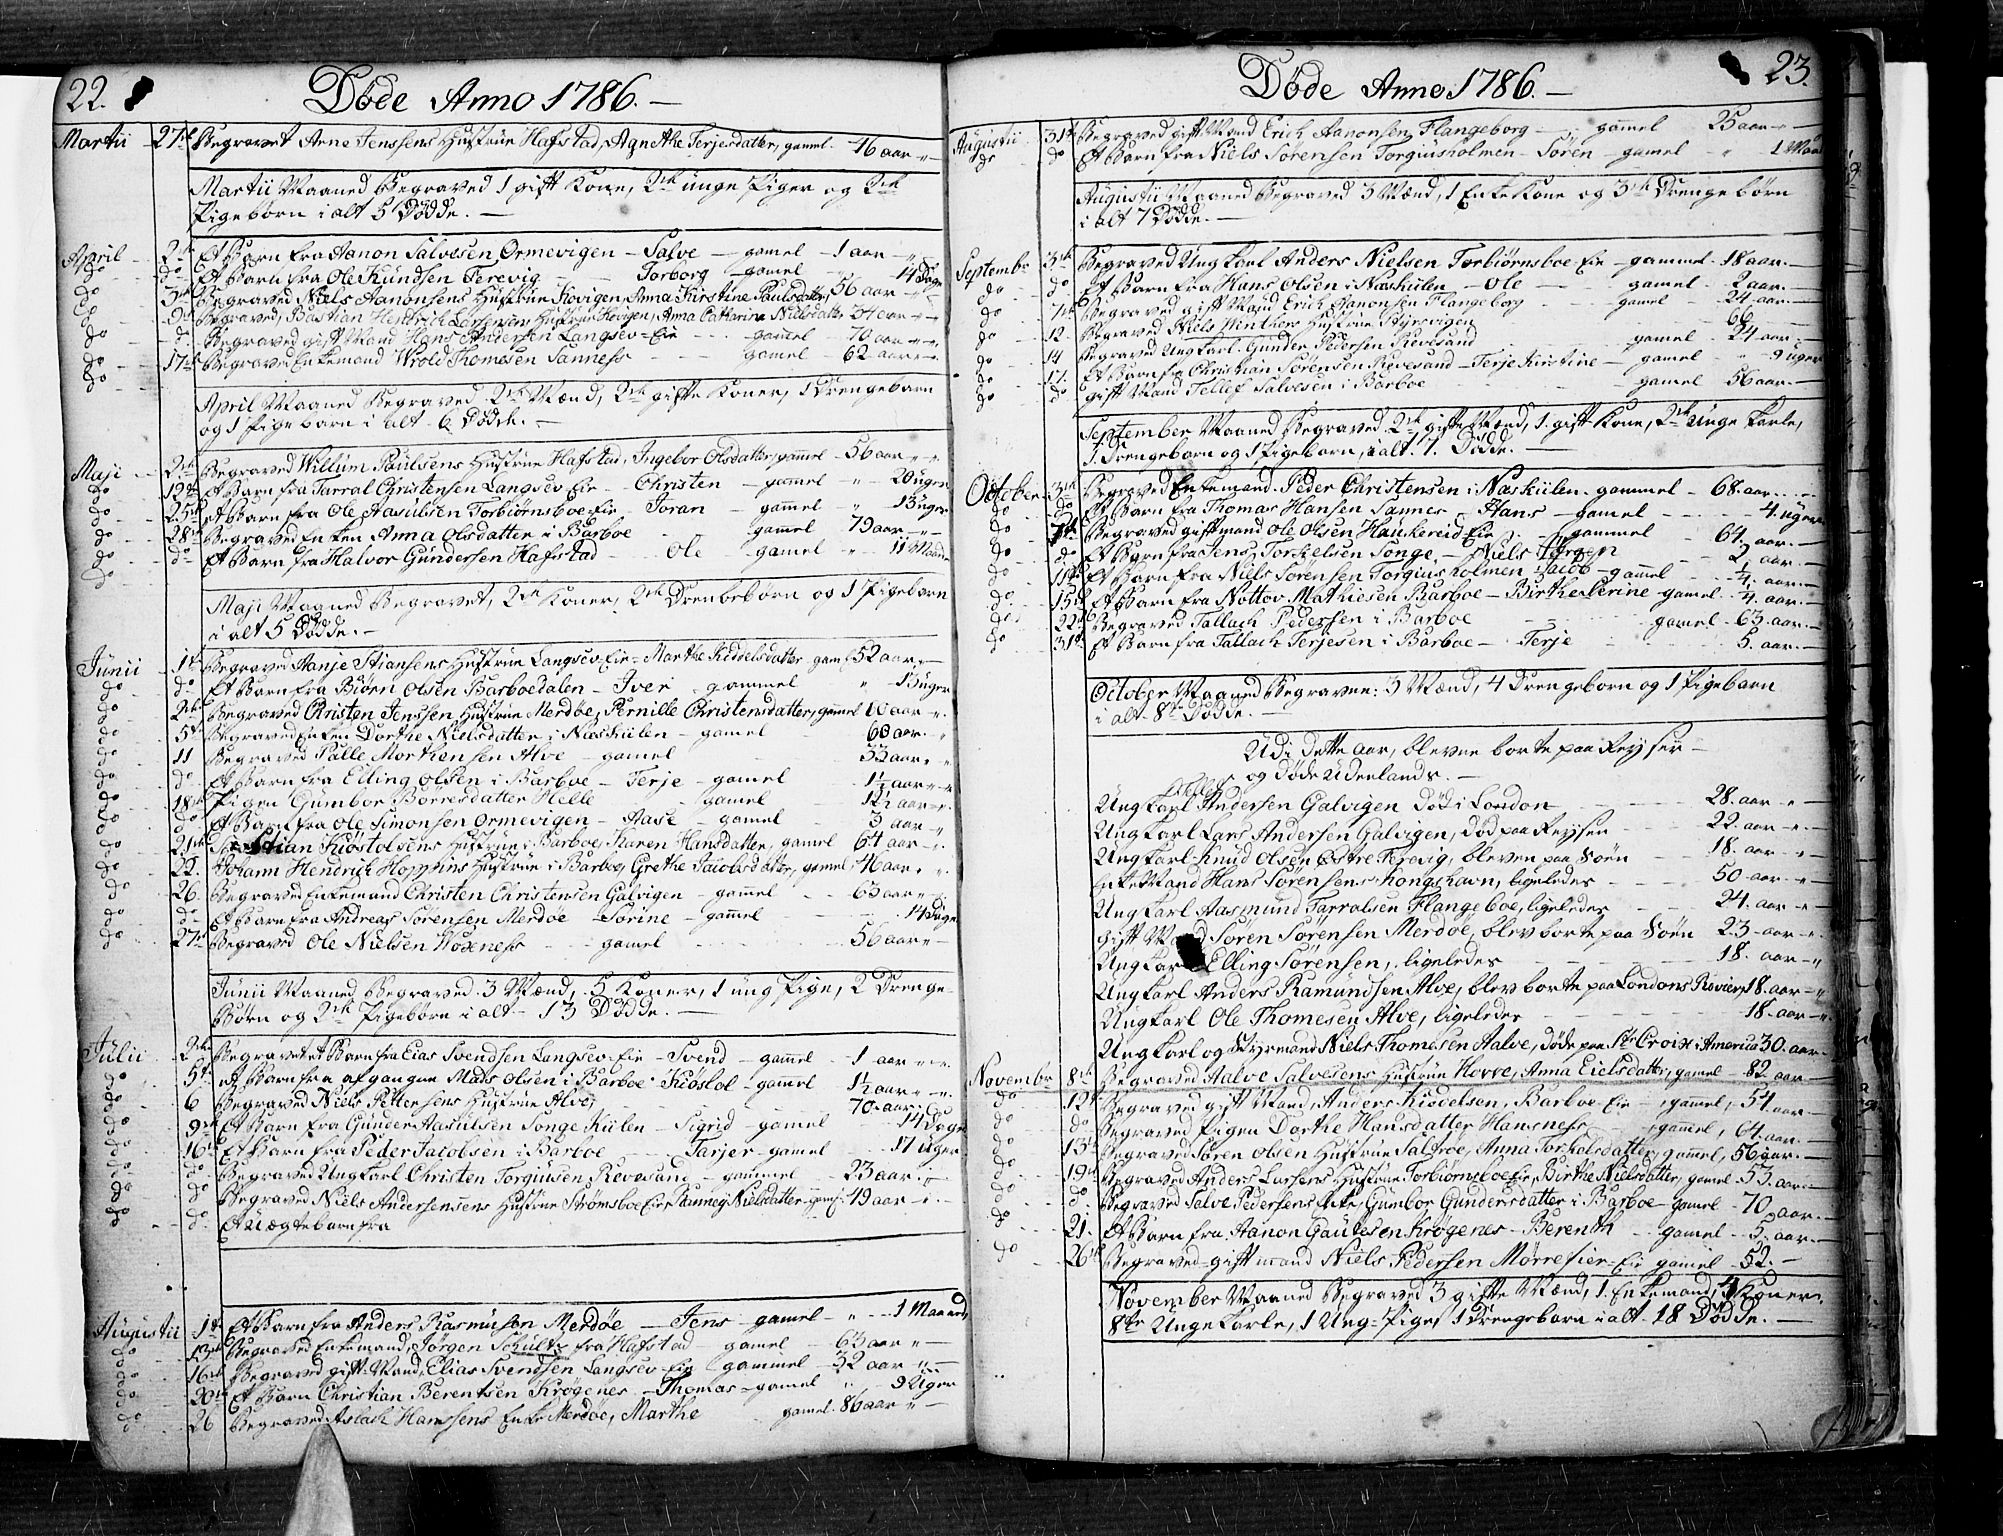 22.
Døde Anno 1786. —
Martii 27de Begravet Arne Jenssens Hustrüe Hafstad, Agnethe Terjesdatter, gamel - 46 aar
Martii Maaned Begraved 1 gift Kone, 2de unge Piger og 2de
Pigebørn i alt 5 Dödde. —
April 2de Et Barn fra Aanon Salvesen Ormevigen - Salve - gamel - 1 aar
do do Et Barn fra Ole Knudsen Terevig - Torborg - gamel - 14 Dage
do 3de Begraved Niels Aanonsens Hustrüe Kovigen, Anna Kirstine Paulsdatter, 56 aar
do do Begraved, Bastian Hendrich Hustrüe Kovigen, Anna Catharina Nielsdatter 34 aar
do d. Begraved gift Mand Hans Andersen Langsev Eie - gamel - 70 aar
do 17de Begraved Enkemand Wrold Thomesen Sanness - gamel 62 aar
do
April Maaned Begraved 2de Mænd, 2de gifte Koner, 1 Drengebarn
og 1 Pigebarn i alt 6 Dødde. —
Maji 2de Begraved Willum Paulsens Hustrüe Hafstad, Ingebor Olsdatter, gamel - 56 aar
do 12te Et Barn fra Tarral Christensen Langsev Eie - Christen - gamel 20 üger
do 25de et Barn fra Ole Aasulsen Torbiørnsboe Eie - Joran - gamel 13 üger
do 28de Begraved Enken Anna Olsdatter i Barboe - gamel 79 aar
do do Et Barn fra Halvor Gundersen Hafstad - Ole - gamel - 11 Maan
do
Maji Maaned Begravet, 2de Koner, 2de Drenbebørn og 1 Pigebarn
i alt 5 Dødde. —
Junii 1te Begraved Aanje Stiansens Hustrüe Langsev Eie - Marthe Kiddelsdatter gam: 52 aar
do do Et Barn fra Biørn Olsen Barboedalen - Iver - gammel 13 üger
do 2de Begraved Christen Jenssen Hustrüe Merdøe, Pernille Christensdatter, gamel aar
do 5te Begraved Enken Dorthe Nielsdatter i Næskiilen - gamel - 60 aar.
do 11 Begraved Palle Morthensen Alve - gamel - 33 aar
do do Et Barn fra Elling Olsen i Barboe - Terje - gamel - 1½ aar
do 18de Pigen Gumbor Børresdatter Helle - gamel - 12½ aar
do do Et Barn fra Ole Simonsen Ormevigen - Aase - gamel - 3 aar
do 21de Stian Kiöstolsens Hustrüe i Barboe, Karen Hansdatter, gamel 64 aar
do 22. Johann Hendrich Hoppins Hustrüe i Barboe, Grethe Jacobsdatter, gamel 46 aar
do 26. Begraved Enkemand Christen Christensen Galvigen - gamel - 63 aar
do do Et Barn fra Andreas Sørensen Merdøe - Sorine - gamel - 14 Dage
do 27de Begraved Ole Nielsen Woxness - gamel - 56 aar
Junii Maaned Begraved 3 Mænd, 5 Koner, 1 ung Pige, 2 Drenge-
Børn og 2de Pigebørn i alt - 13 Dødde. —
Julii 2de Begravet et Barn fra Elias Svendsen Langsev Eie - Svend - gamel - 1 aar
do 5te et Barn fra afgangne Mads Olsen i Barboe - Kiøstol - gamel 1½ aar
do 6 Begraved Niels Pettersens Hustrüe Alve, 70 aar
do 9de Et Barn fra Gunder Aasulsen Songe Kiilen - Sigrid - gamel - 14 Dage
do 16de Et Barn fra Peder Jacobsen i Barboe - Tarjer - gamel - 17 üger
do do Begraved Ung Karl Christen Torgiusen, Revesand - gammel - 23 aar
do do Begraved Niels Andersensens Hustrüe Strømsboe Eie, Ranneg Nielsdatter gamel 49 aar
do do Et Uægte barn fra
Augustii 1te Et Barn fra Anders Rasmusen Merdøe - Jens - gamel - 1 Maaned
do 13de Begraved Enkemand Jørgen Schultz fra Hafstad - gamel - 63 aar
do 16de Begraved gift Mand, Elias Svendsen Langsev Eie - gammel - 32 aar
do 20de Et Barn Christian Berentsen Krøgenes - Thomas - gamel - 9 Uger
do 26 Begraved Aslach Hanssens Enke Merdøe, Marthe gamel. 86 aar
23.
Døde Anno 1786. —
Augustii 31te Begraved gift Mand Erich Aanonsen Flangeborg - gammel 25 aar
do do Et Barn fra Niels Sørensen Torgiusholmen - Søren - gamel 1 Maan
Augustii Maaned Begraved 3 Mænd, 1 Enke Kone og 3de Drengebørn
i alt 7 Dødde. —
Septembr 3de Begraved Ung Karl Anders Nielsen Torbiørnsboe Eie - gammel - 18 aar.
do do Et Barn fra Hans Olsen i Næskiilen - Ole - gamel - 2 aar.
do 7de Begraved gift Mand Erich Aanonsen Flangeborg gamel - 24. aar.
do 12. Begraved Niels Winthers Hustrüe Styrevigen 66
do 14 Begraved Ung Karl Gunder Pedersen Revesand - gamel - 24 aar
do 17. Et Barn fra Christian Sørensen Revesand - Terje Kirstine - gamel 9 uger
do do gift Mand Tellef Salvesen i Barboe - gamel 56 aar.
September Maaned Begraved 2de gifte Mænd, 1. gift Kone, 2de Unge Karle,
1. Drengebarn og 1 Pigebarn, i alt. 7. Dødde. —
October 3de Begraved Enkemand Peder Christensen i Næskiilen - gammel - 68. aar
do do Et Barn fra Thomas Hansen Sannes - Hans - gamel - 4. uger
do 7de Begraved gift mand Ole Olsen Haukereid Eie - gammel - 64. aar.
do do Et Barn fra Jens Torkelsen Songe - Niels Jørgen - 2 aar.
do 11te Et Barn fra Niels Sørensen Torgiusholmen Jacob - gamel - 4. aar.
do 15de Et Barn fra Nottov Mathiesen Barboe - Birthe Serine - gamel - 4. aar.
do 22de Begraved Tallach Pedersen i Barboe gamel - 63. aar.
do 31te Et Barn fra Tallach Terjesen i Barboe - Terje 5. aar.
October Maaned Begravne: 3 Mænd, 4 Drengebørn og 1 Pigebarn
i alt - 8te Dødde. —
Udi dette aar, blevne borte paa Reyser
og døde Udenlands. —
Ung Karl Andersen Galvigen Død i London 28. aar
Ung Karl Lars Andersen Galvigen, død paa Reysen 22. aar
Ung Karl Knud Olsen Østre Terevig, bleven paa Søen 18. aar
Enke Mand Hans Sørensens Kongshavn, ligeledes 50 aar
Ung Karl Aasmund Tarralsen Flangeboe, ligeledes 24. aar
Gift Mand Søren Sørensen Merdøe, blev borte paa Søen 23. aar
Ung Karl Elling Sørensen, ligeledes 18. aar
Ung Karl Anders Ramundsen Alve, blev borte paa Londons Revier, 18. aar
Ung Karl Ole Thomesen Alve, ligeledes 18. aar
Ung Karl og Styrmand Niels Thomesen Aalve, døde paa St Croix i America 30. aar
Novembr 8de Begraved Aalve Salvesens Hustrüe Hovve, Anna Eielsdatter, gamel - 82 aar
do 12te Begraved gift Mand, Anders Kisdelsen, Barboe Eie - gamel, 54. aar
do do Begraved Pigen Dorthe Hansdatter Hansness, gammel, 64. aar.
do 13de Begraved Søren Olsen Hustrüe Saltrøe, Anna Torkelsdatter, gammel, 56 aar.
do 19de Begraved Anders Larsens Hustrüe Torbiørnsboe Eie, Birthe Nielsdatter, gamel - 53. aar.
do do Begraved Salve Pedersens Enke, Gumbor Gundersdatter i Barboe - gamel - 70 aar.
do 21. Et Barn fra Aanon Gautesen Krøgenes - Berenth - gamel - 5. aar.
do 26de Begraved gift mand Niels Pedersen Mørrefier Eie gamel - 52. —
November Maaned Begraved 3 gifte Mænd, 1. Enkemand, 4 Koner,
8te Unge Karle, 1 Ung Pige, 1 Drengebarn i alt - 18 Dødde. —